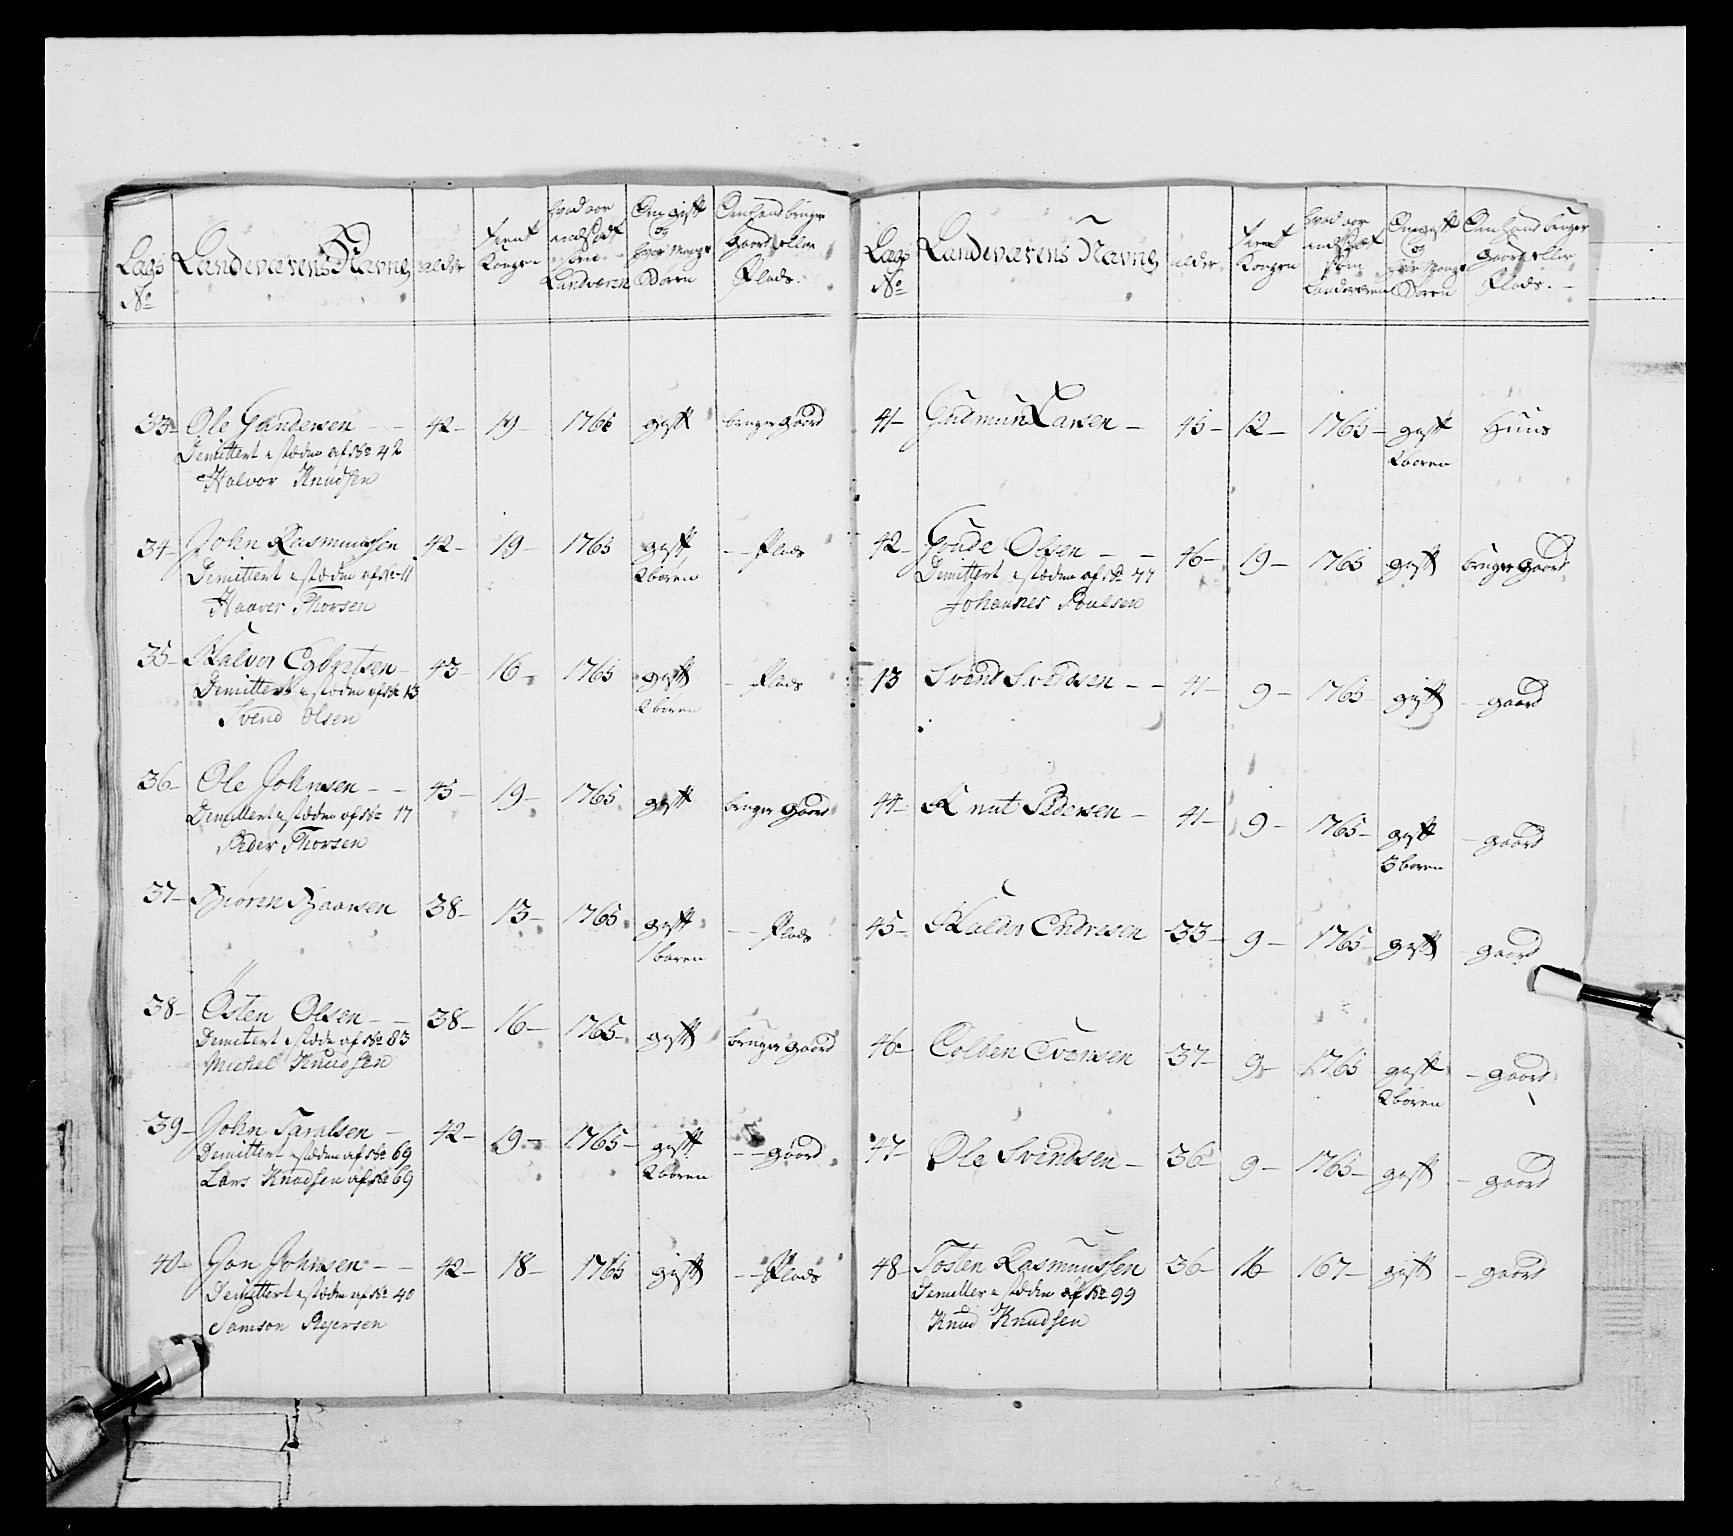 Lags No | Landeværens Navne | alder | tient Kongen | hvad aar ansadt som Landværen | Om gift og hvor mange Børen | Om hand bruger Gaard eller Plads.
33- Ole Gundersen - - 42- 19- 1765 gift bruger gaard
Demittert i stæden af No 42
Halvor Knudsen
34- John Rasmussen 42- 19- 1765 gift -- Plads
Demittert i stæden af No 11 2 børen
Haaver Thorsen
35- Halvor Egbretsen- 43- 16- 1765 gift - Plads
Demittert i stæden af No 13 2 børen
Svend Olsen
36- Ole Johnsen - - 45- 19- 1765 gift bruger gaard
Demittert i stæden af No 17
Peder Thorsen
37- Biøren Baarsen 38- 13- 1765 gift -- Plads
1 børen
38- Østen Olsen - - 38- 16- 1765- gift bruger gaard
Demitert i stæde af No 83
Michel Knudsen
39- John Taralsen - 42- 19- 1765- gift -- gaard
Demittert i stæden af No 69 2 børen
Lars Knudsen af No 69
40- Jon Johnsen - - 42- 18- 1765 gift -- Plads
Demittert i stæden af No 40
Samson Rejersen
Lags No | Landeværens Navne | alder | tient Kongen | hvad aar ansadt som Landeværen | Om gift og hvor mange Børen | Om hand bruger Gaard eller Plads.-
41- Gudmun Larsen - 45- 12- 1765- gift Huus
2 børen
42- Goude Olsen - - 46- 19- 1765 gift bruger gaard
Demittert i stæden af No 77
Johannes Poulsen
13 Svend Svendsen - - 41- 9- 1765 gift -- gaard
44- Knut Pedersen - 41- 9- 1765- gift - gaard
3 børen
45- Haldor Endresen 33- 9- 1765 gift - gaard
46- Colben Evensen 37- 9- 1765 gift - gaard
2 børen
47- Ole Svendsen - 36- 9- 1765- gift - gaard
48- Tosten Rasmussen 36- 16 167- gift - gaard
Demitter i stæden af No 99
Knud Knudsen